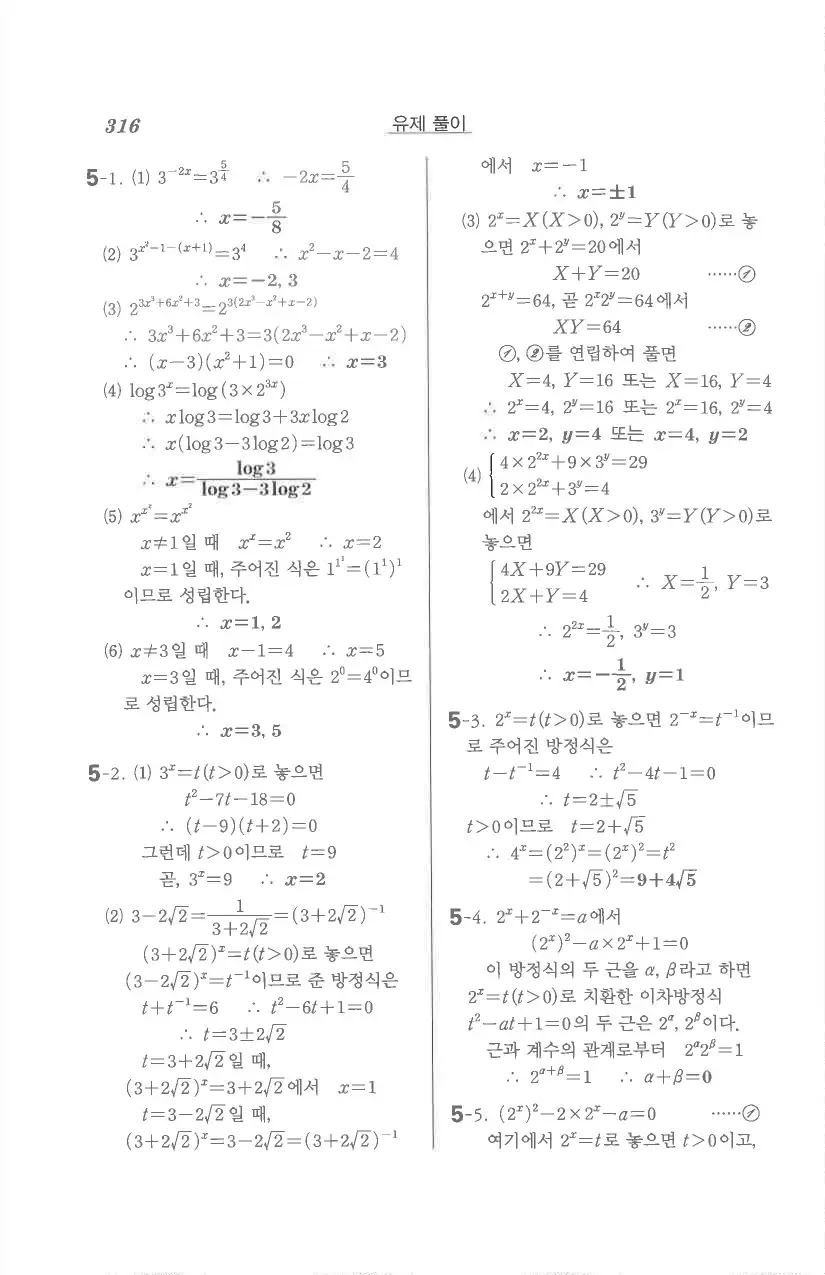 316
유제 풀이
5-1. (1) 3^{-2x}=3^{5/4} ∴ -2x=5/4
∴ x=-5/8
(2) 3^{x²-1-(x+1)}=3⁴ ∴ x²-x-2=4
∴ x=-2, 3
(3) 2^{3x³+6x²+3}=2^{3(2x³-x²+x-2)}
∴ 3x³+6x²+3=3(2x³-x²+x-2)
∴ (x-3)(x²+1)=0 ∴ x=3
(4) log3^x=log(3×2^{3x})
∴ xlog3=log3+3xlog2
∴ x(log3-3log2)=log3
∴ x=log3/(log3-3log2)
(5) x^{x^x}=x^{x²}
x≠1일 때 x^x=x² ∴ x=2
x=1일 때, 주어진 식은 1^{1^1}=(1¹)¹
이므로 성립한다.
∴ x=1, 2
(6) x≠3일 때 x-1=4 ∴ x=5
x=3일 때, 주어진 식은 2⁰=4⁰이므
로 성립한다.
∴ x=3, 5
5-2. (1) 3^x=t(t>0)로 놓으면
t²-7t-18=0
∴ (t-9)(t+2)=0
그런데 t>0이므로 t=9
곧, 3^x=9 ∴ x=2
(2) 3-2√2=1/(3+2√2)=(3+2√2)^{-1}
(3+2√2)^x=t(t>0)로 놓으면
(3-2√2)^x=t^{-1}이므로 준 방정식은
t+t^{-1}=6 ∴ t²-6t+1=0
∴ t=3±2√2
t=3+2√2일 때,
(3+2√2)^x=3+2√2에서 x=1
t=3-2√2일 때,
(3+2√2)^x=3-2√2=(3+2√2)^{-1}
에서 x=-1
∴ x=±1
(3) 2^x=X(X>0), 2^y=Y(Y>0)로 놓
으면 2^x+2^y=20에서
X+Y=20 ……①
2^{x+y}=64, 곧 2^x2^y=64에서
XY=64 ……②
①, ②를 연립하여 풀면
X=4, Y=16 또는 X=16, Y=4
∴ 2^x=4, 2^y=16 또는 2^x=16, 2^y=4
∴ x=2, y=4 또는 x=4, y=2
(4) { 4×2^{2x}+9×3^y=29
2×2^{2x}+3^y=4
에서 2^{2x}=X(X>0), 3^y=Y(Y>0)로
놓으면
{ 4X+9Y=29
2X+Y=4 ∴ X=1/2, Y=3
∴ 2^{2x}=1/2, 3^y=3
∴ x=-1/2, y=1
5-3. 2^x=t(t>0)로 놓으면 2^{-x}=t^{-1}이므
로 주어진 방정식은
t-t^{-1}=4 ∴ t²-4t-1=0
∴ t=2±√5
t>0이므로 t=2+√5
∴ 4^x=(2²)^x=(2^x)²=t²
=(2+√5)²=9+4√5
5-4. 2^x+2^{-x}=a에서
(2^x)²-a×2^x+1=0
이 방정식의 두 근을 α, β라고 하면
2^x=t(t>0)로 치환한 이차방정식
t²-at+1=0의 두 근은 2^α, 2^β이다.
근과 계수의 관계로부터 2^α2^β=1
∴ 2^{α+β}=1 ∴ α+β=0
5-5. (2^x)²-2×2^x-a=0 ……①
여기에서 2^x=t로 놓으면 t>0이고,